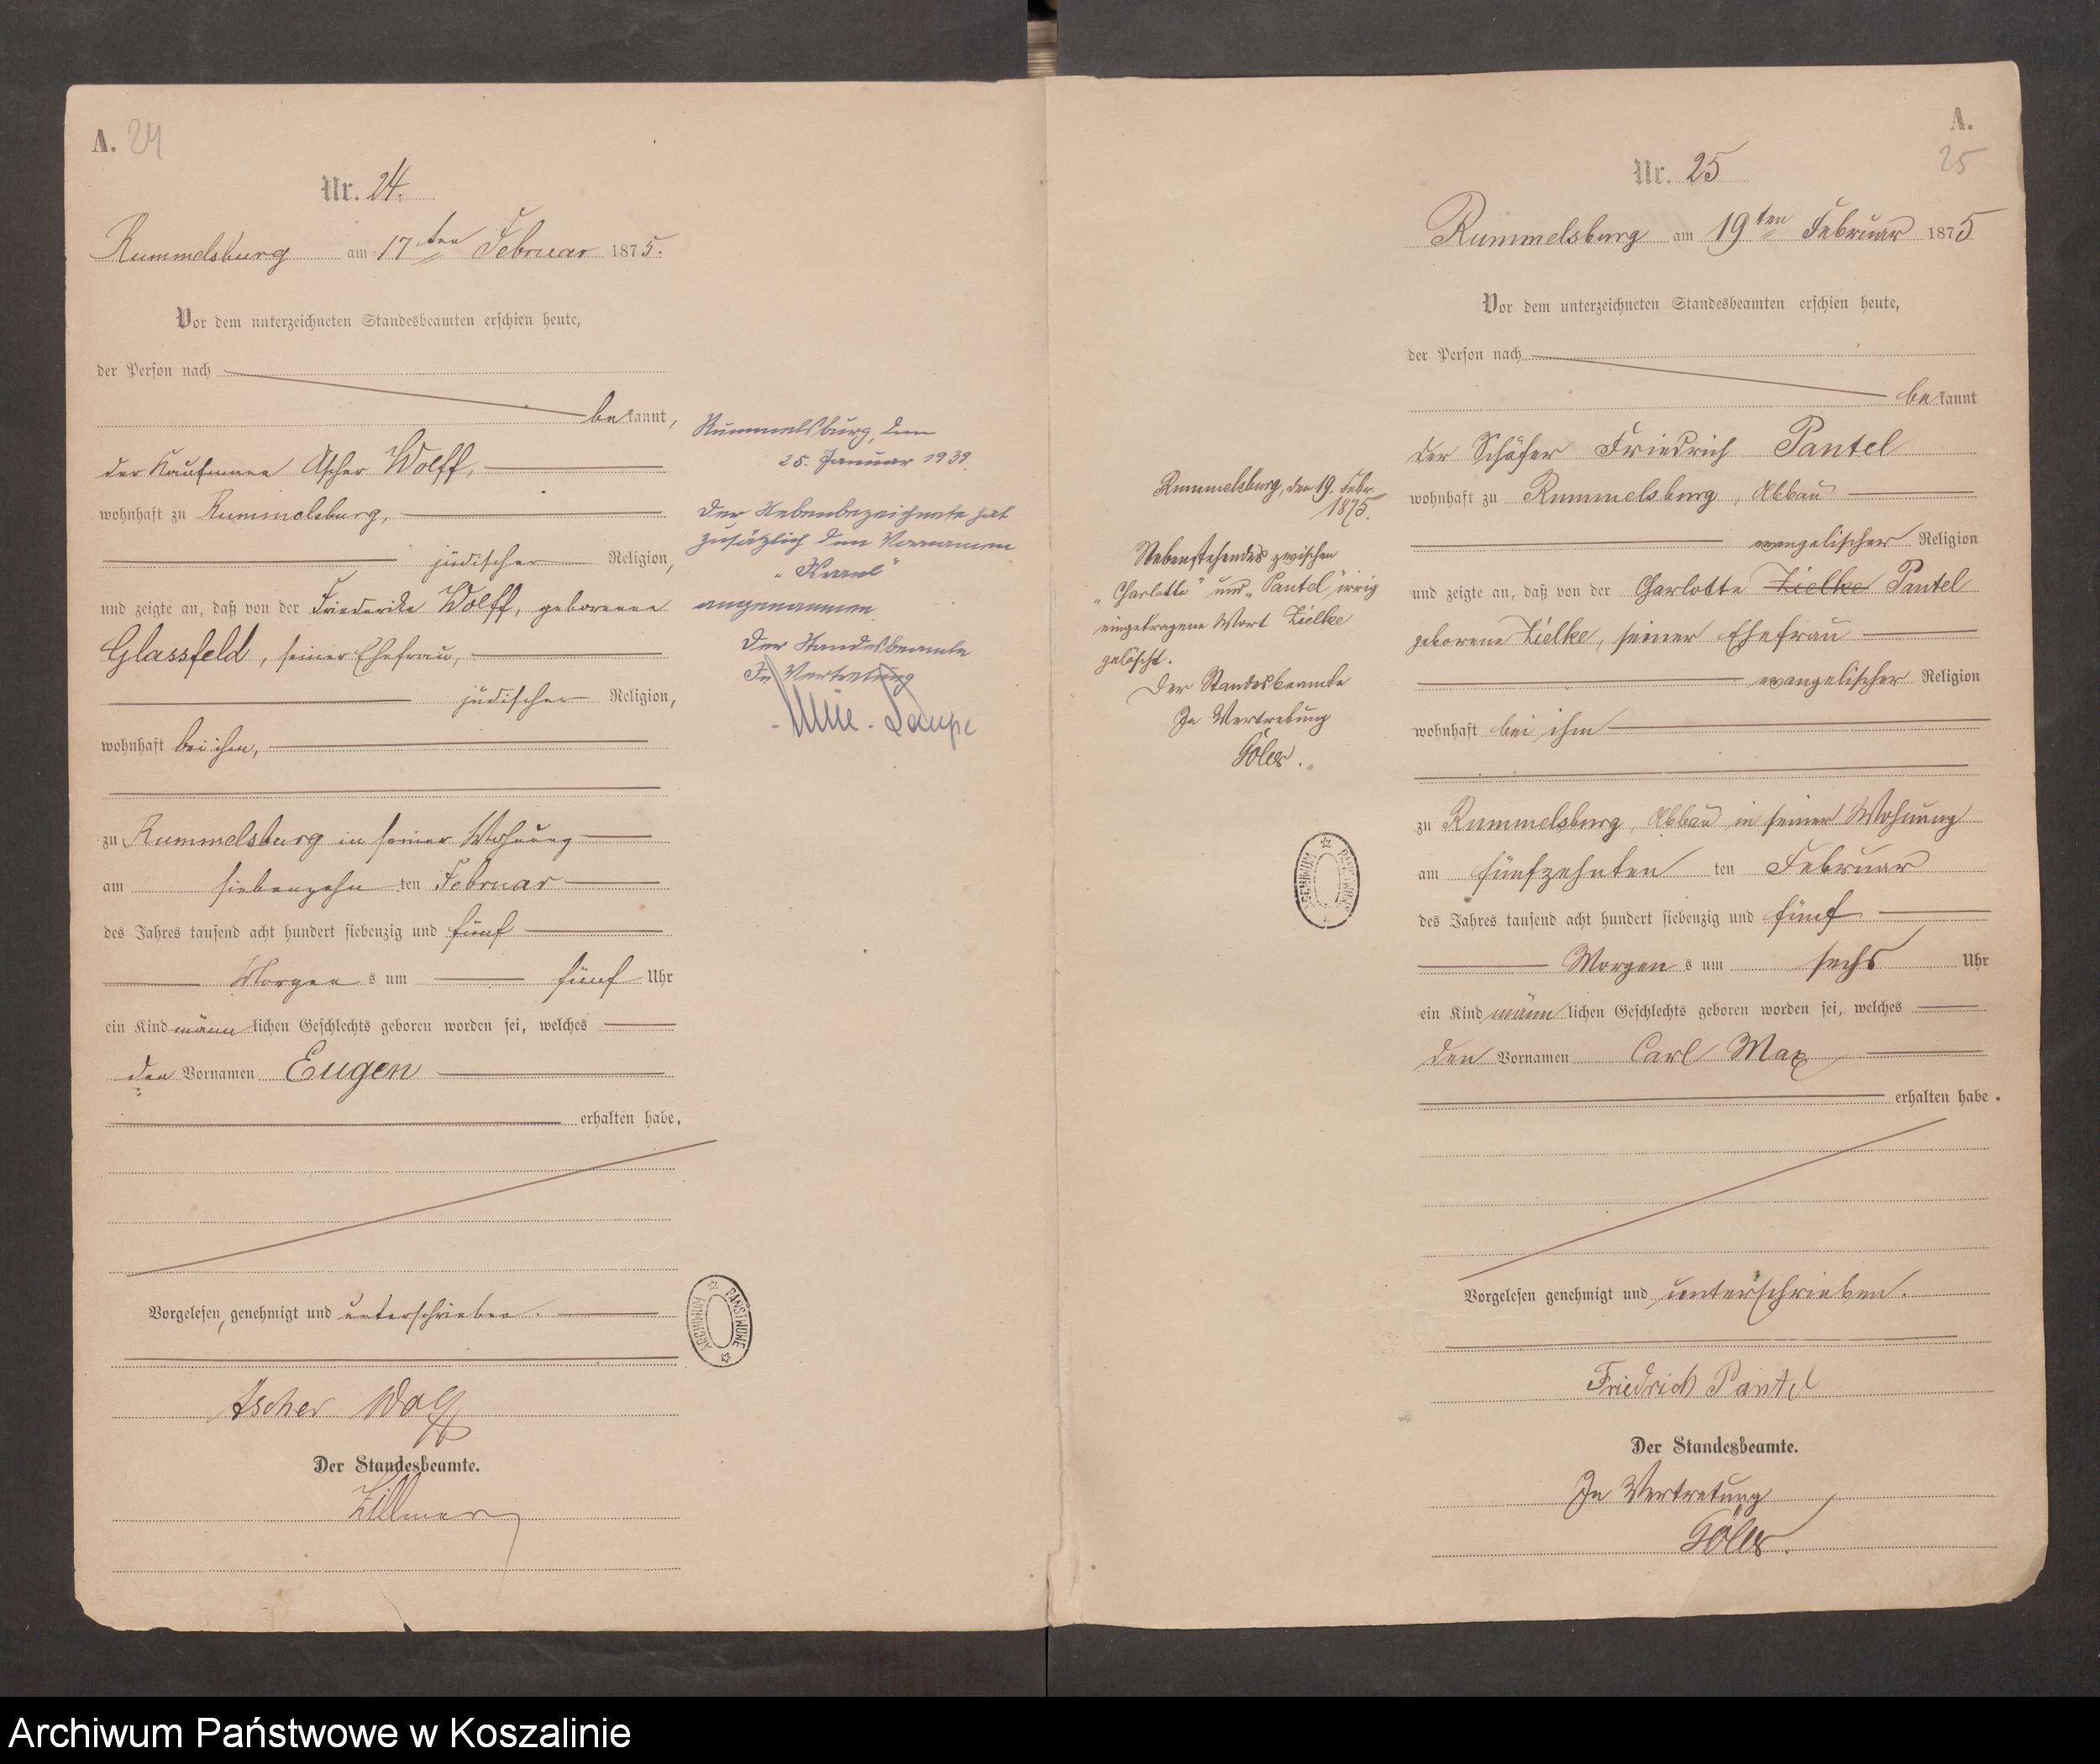 A. 24
Nr. 24.
Rummelsburg am 17ten Februar 1875.
Vor dem unterzeichneten Standesbeamten erschien heute,
der Person nach
bekannt,
der Kaufmann Ascher Wolff,
wohnhaft zu Rummelsburg,
jüdischer Religion,
und zeigte an, daß von der Friederike Wolff, geborenen
Glassfeld, seiner Ehefrau,
jüdischer Religion,
wohnhaft bei ihm,
zu Rummelsburg in seiner Wohnung
am siebenzehn ten Februar
des Jahres tausend acht hundert siebenzig und fünf
Morgen s um fünf Uhr
ein Kind männlichen Geschlechts geboren worden sei, welches
den Vornamen Eugen
erhalten habe.
Vorgelesen, genehmigt und unterschrieben.
Ascher Wolff
Der Standesbeamte.
Zillmer
Rummelsburg, den
25. Januar 1939.
Der Nebenbezeichnete hat
zusätzlich den Vornamen
"Israel"
angenommen.
Der Standesbeamte
In Vertretung
ARCHIWUM PAŃSTWOWE
A.
25
Nr. 25
Rummelsburg am 19ten Februar 1875
Vor dem unterzeichneten Standesbeamten erschien heute,
der Person nach
bekannt
der Schäfer Friedrich Pantel
wohnhaft zu Rummelsburg, Abbau
evangelischer Religion
und zeigte an, daß von der Charlotte Zielke Pantel
geborene Zielke, seiner Ehefrau
evangelischer Religion
wohnhaft bei ihm
zu Rummelsburg, Abbau in seiner Wohnung
am fünfzehnten ten Februar
des Jahres tausend acht hundert siebenzig und fünf
Morgen s um sechs Uhr
ein Kind männlichen Geschlechts geboren worden sei, welches
den Vornamen Carl Max
erhalten habe.
Vorgelesen genehmigt und unterschrieben.
Friedrich Pantel
Der Standesbeamte.
In Vertretung
Rummelsburg, den 19. Febr.
1875.
Nebenstehendes zwischen
"Charlotte" und "Pantel" irrig
eingetragene Wort Zielke
gelöscht.
Der Standesbeamte
In Vertretung
ARCHIWUM PAŃSTWOWE
Archiwum Państwowe w Koszalinie